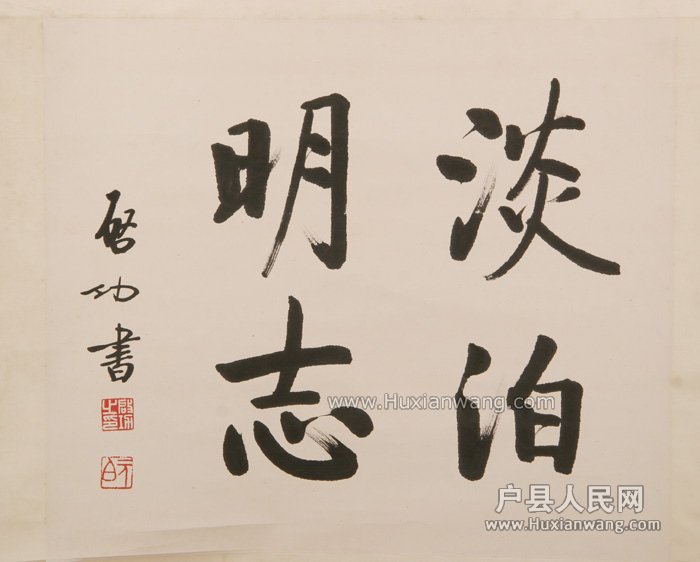 淡泊
明志
启功书
启功之印
www.Huxianwang.com
户县人民网
www.Huxianwang.com